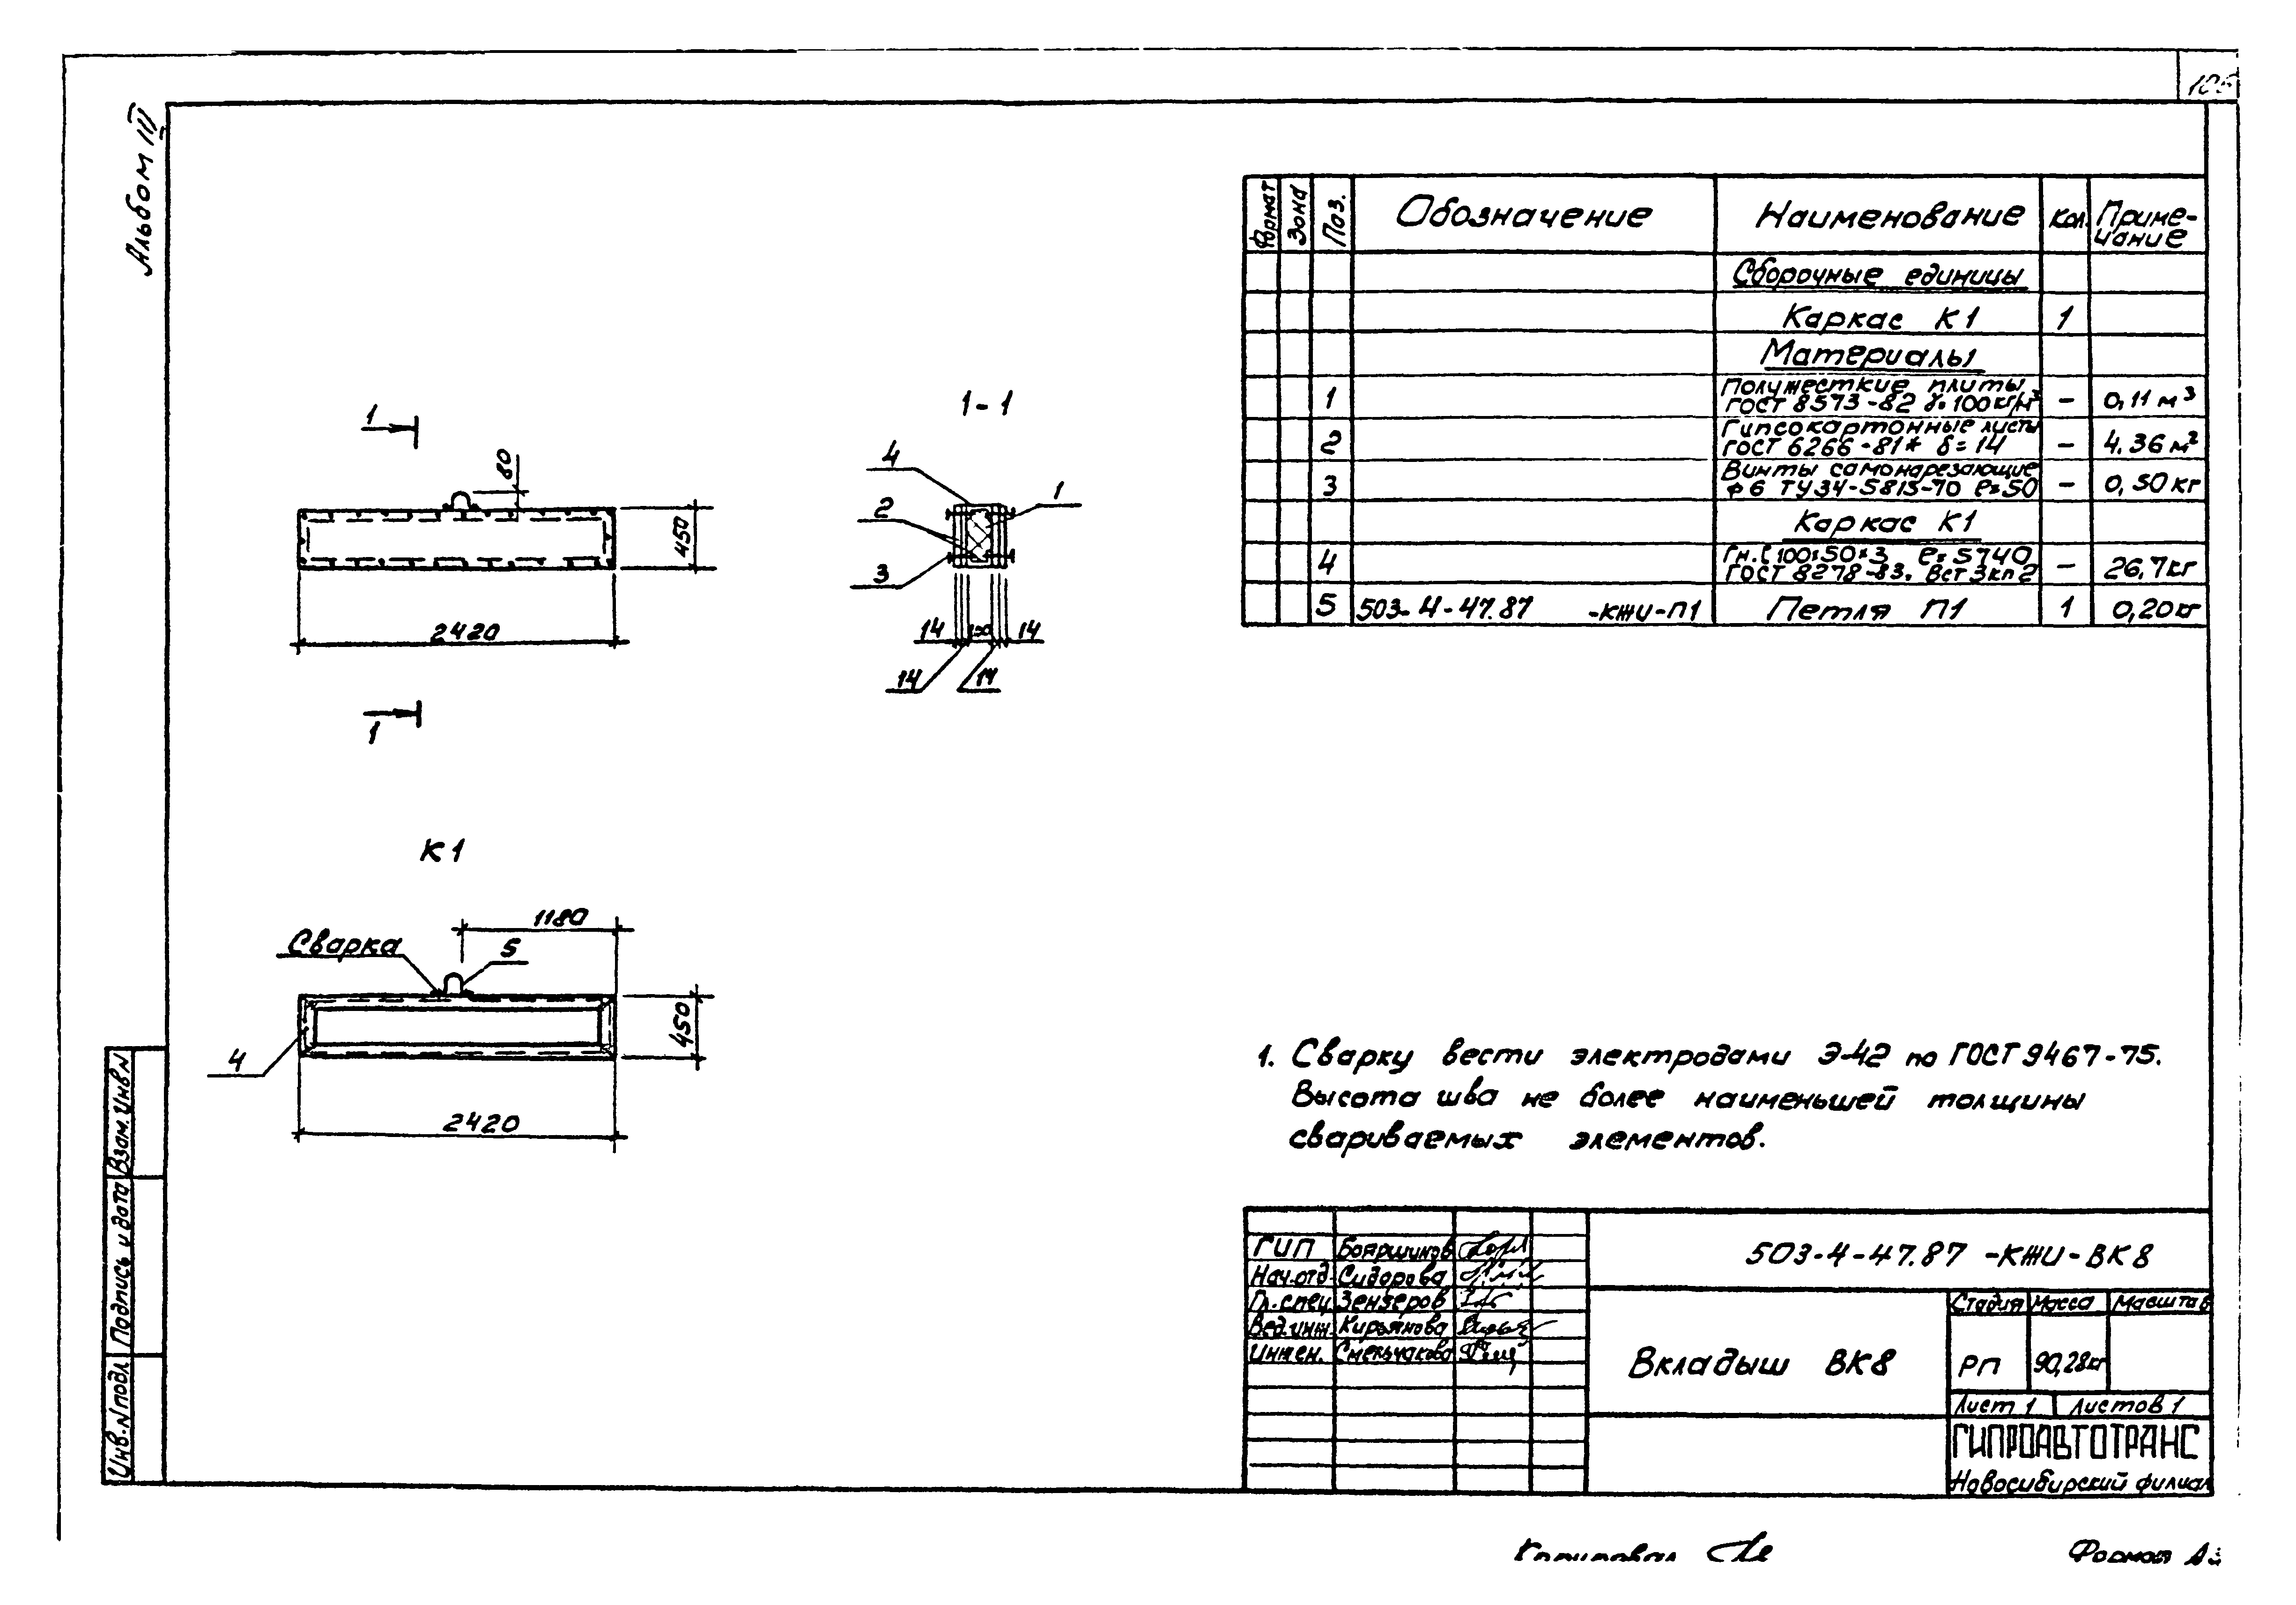 Альбом III
Формат Зона Поз. Обозначение Наименование Кол. Приме-
чание
Сборочные единицы
Каркас К1 1
Материалы
Полужесткие плиты
1 ГОСТ 8573-82 γ=100кг/м³ – 0,11 м³
Гипсокартонные листы
2 ГОСТ 6266-81* δ=14 – 4.36 м²
Винты самонарезающие
3 ф6 ТУ34-5815-70 ℓ=50 – 0,50 кг
Каркас К1
Гн.[100×50×3 ℓ=5740
4 ГОСТ 8278-83. Вст3кп2 – 26.7кг
5 503-4-47.87 -КЖИ-П1 Петля П1 1 0,20кг
1
80
450
2420
1
1-1
4
1
2
3
14 100 14
14 14
К1
1180
Сварка 5
450
4
2420
1. Сварку вести электродами Э-42 по ГОСТ 9467-75.
Высота шва не более наименьшей толщины
свариваемых элементов.
Взам. Инв N
Подпись и дата
Инв. N подл.
ГИП Бояршинов
Нач.отд. Сидорова
Гл.спец. Зензеров
Вед.инж. Кирьянова
Инжен. Смельчакова
503-4-47.87 -КЖИ-ВК8
Вкладыш ВК8
Стадия Масса Масштаб
РП 90,28кг
Лист 1 Листов 1
ГИПРОАВТОТРАНС
Новосибирский филиал
Копировал
Формат А3